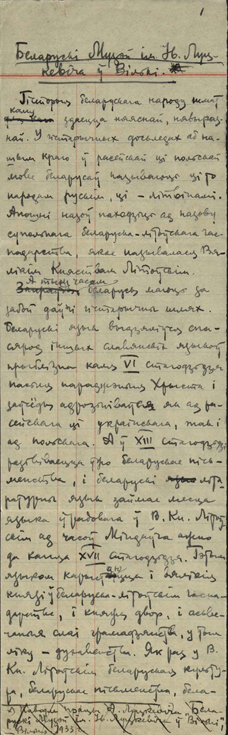 1
Беларускі Музэй ім. Ів. Луц-
кевіча ў Вільні.
Гісторыя беларускага народу шмат
каму здаецца няяснай, нявыраз-
най. У гістарычных досьледах аб на-
шым краю ў расейскай ці польскай
мове беларусаў называюць ці то
народам рускім, ці – літоўскім.
Апошні назоў паходзіць ад назову
супольнага беларуска-літоўскага гас-
падарства, якое называлася Вя-
лікім Княствам Літоўскім.
А тымчасам беларусы маюць за
сабой даўгі гістарычны шлях.
Беларуская язык выдзяляецца спа-
сярод іншых славянскіх языкоў
прыблізна каля VI стагодзьдзя
пасьля народжэньня Хрыста і
затым адрозьніваецца як ад ра-
сейскага ці украінскага, так і
ад польскага. А ў XIII стагодзьдзі
разьвіваецца ўжо беларускае пісь-
менства, і беларускі літэ-
ратурны язык займае месца
языка ўрадовага ў В. Кн. Літоў-
скім ад часоў Міндаўга ажно
да канца XVII стагодзьдзя. Гэтым
языком карысталіся і вялікія
князі ў беларуска-літоўскім гаспа-
дарстве, і княжы двор, і асьве-
чаныя слаі грамадзянства, у тым
ліку – духавенства. Як раз у В.
Кн. Літоўскім беларуская культу-
ра, беларускае пісьменства, бела-
Беларускі Музэй ім. Ів. Луцкевіча ў Вільні,
Вільня 1933